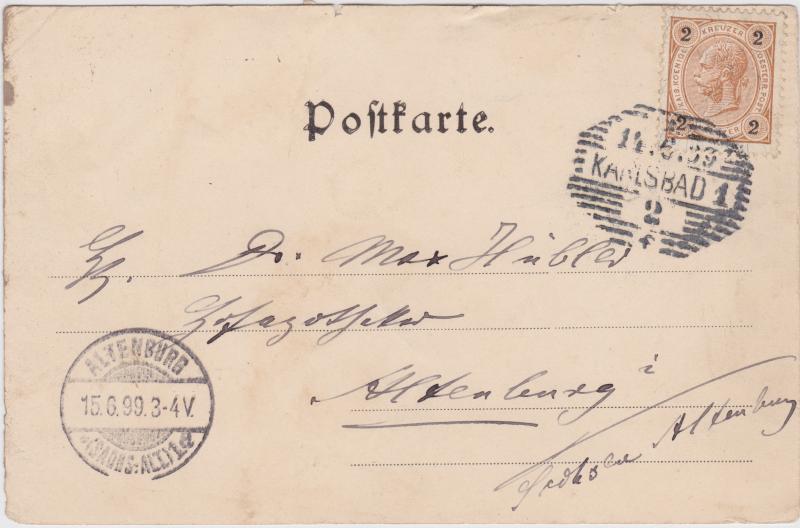 2 KREUZER 2
KAIS. KOENIGL. OESTERR. POST
2 KREUZER 2
Postkarte.
14.6.99
KARLSBAD 1
2
f
Hr. Dr. Max Hübler
Hofapotheke
Altenburg i
Sachsen Altenburg
ALTENBURG
15.6.99.3-4V.
(SACHS:-ALT.) 1.d